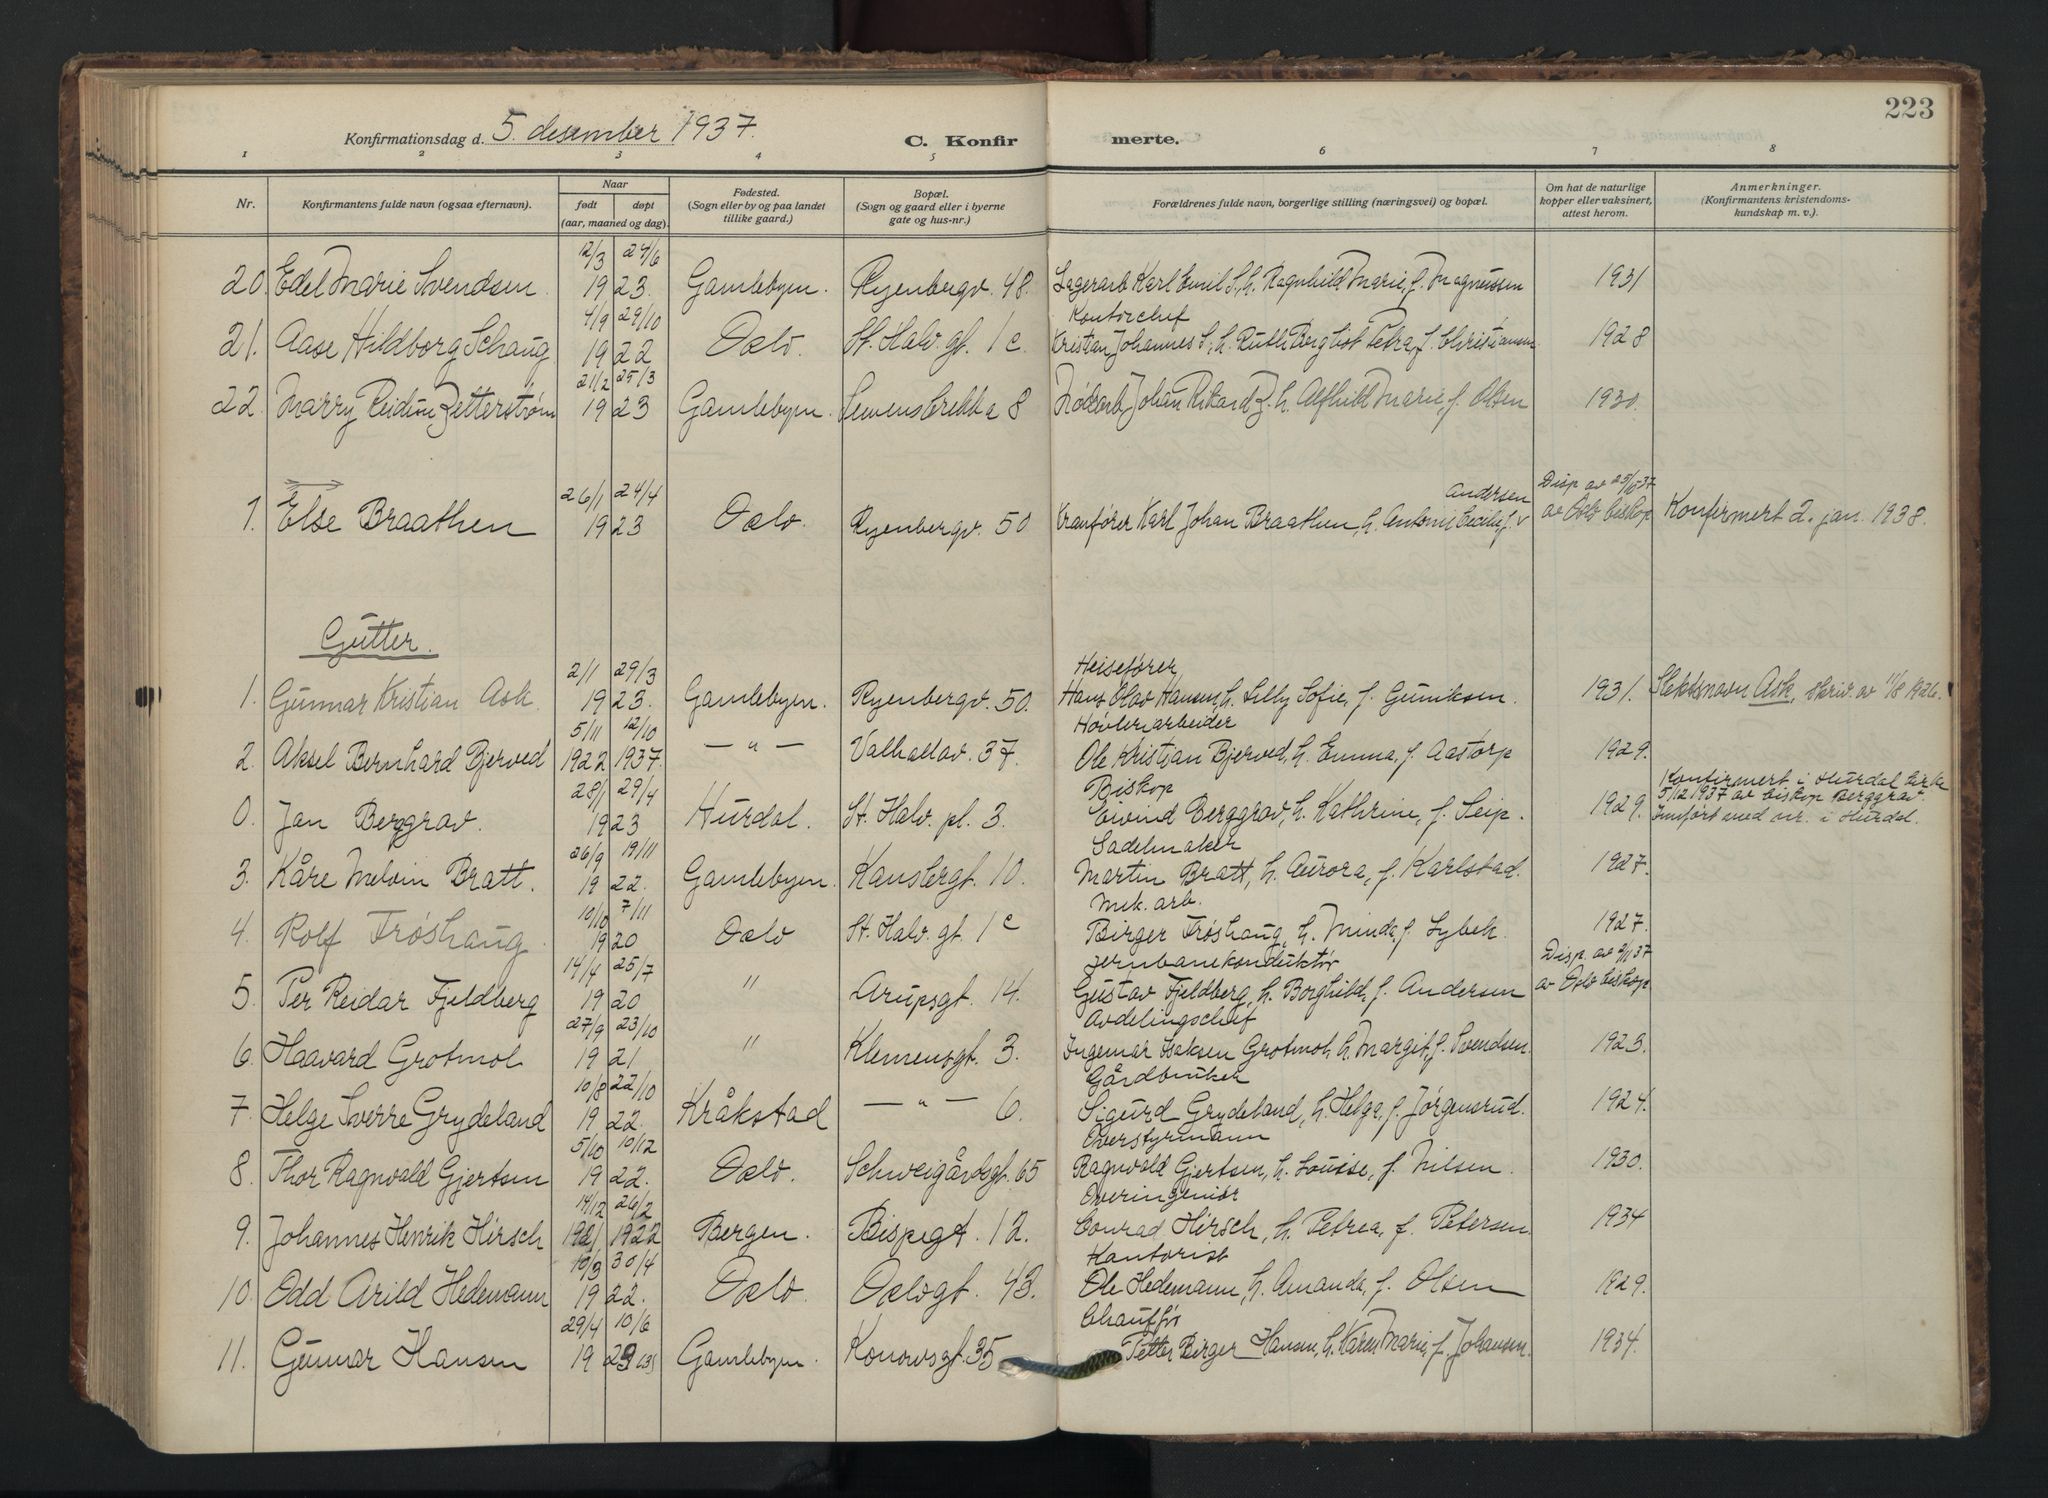 223
Konfirmationsdag d. 5. desember 1937. C. Konfirmerte.
1 2 3 4 5 6 7 8
Nr. Konfirmantens fulde navn (ogsaa efternavn). Naar født døpt (aar, maaned og dag). Fødested. (Sogn eller by og paa landet tillike gaard.) Bopæl. (Sogn og gaard eller i byerne gate og hus-nr.) Forældrenes fulde navn, borgerlige stilling (næringsvei) og bopæl. Om hat de naturlige kopper eller vaksinert, attest herom. Anmerkninger. (Konfirmantens kristendomskundskap m. v.).
12/3 24/6
20. Edel Marie Svendsen. 19 23. Gamlebyen. Ryenbergv. 48. Lagerarb Karl Emil S, h. Ragnhild Marie, f. Magnussen 1931
4/9 29/10 Kontorchef
21. Aase Hildborg Schaug 19 22 Oslo. St. Halv. gt. 1 c. Kristian Johannes S, h. Ruth Bergliot Petra, f. Christiansen 1928
21/2 25/3
22. Marry Reidun Zetterstrøm 19 23 Gamlebyen. Svensbrekka 8 Johan Rikard Z. h. Alfhild Marie, f. Olsen 1930.
26/1 24/4 Andersen Disp av
1. Else Braathen 19 23 Oslo. Ryenbergv. 50 Kranfører Karl Johan Braathen, h. Antonie Cecilie f. av Oslo biskop Konfirmert 2. jan. 1938.
Gutter.
2/1 29/3 Heisefører
1. Gunnar Kristian Ask. 19 23. Gamlebyen. Ryenbergv. 50. Hans Olav Hansen, h. Lilly Sofie, f. Guniksen. 1931. Slektsnavn Ask, skriv. av 11/8 1926.
5/11 12/10 Høvleriarbeider
2. Aksel Bernhard Bjerved 1922 1937. — " — Valhallav. 37. Ole Kristian Bjerved, h. Emma, f. Aastorp 1929.
28/1 29/4 Biskop Konfirmert i Hurdal kirke
0. Jan Berggrav. 19 23 Hurdal. St. Halv. pl. 3. Eivind Berggrav, h. Kathrine, f. Seip. 1929. 5/12 1937 av biskop Berggrav. Innført med nr. i Hurdal.
26/9 19/11 Sadelmaker
3. Kåre Melvin Bratt. 19 22. Gamlebyen. Kanslergt. 10. Martin Bratt, h. Aurora, f. Karlstad. 1927.
10/10 7/11 Mek. arb.
4. Rolf Frøshaug. 19 20 Oslo St. Halv. gt. 1 c Birger Frøshaug, h. Minda, f. Lybek. 1927.
14/4 25/7 Jernbanekonduktør Disp. av
5. Per Reidar Fjeldberg 19 20 " Arupsgt. 14. Gustav Fjeldberg, h. Borghild, f. Andersen av Oslo biskop
27/9 23/10 Avdelingschef
6. Haavard Grotmol 19 21. " Klemensgt. 3. Ingemar Isaksen Grotmol, h. Margit, f. Svendsen. 1923.
10/8 22/10 Gårdbruker
7. Helge Sverre Grydeland 19 22. Kråkstad — " — 6. Sigurd Grydeland, h. Helga, f. Jørgensrud. 1924.
5/10 10/12 Overstyrmann
8. Thor Ragnvald Gjertsen 19 22. Oslo. Schweigårdsgt. 65 Ragnvald Gjertsen, h. Louise, f. Nilsen. 1930.
14/12 26/2 Overingeniør
9. Johannes Henrik Hirsch 1921 1922 Bergen. Bispegt. 12. Conrad Hirsch, h. Petrea, f. Petersen. 1934
10/3 30/4 Kontorist
10. Odd Arild Hedemann 19 22. Oslo. Oslogt. 43. Ole Hedemann, h. Amanda, f. Olsen 1929.
29/4 10/6 Chauffør
11. Gunnar Hansen 19 23 Gamlebyen. Konowsgt. 35 Petter Birger Hansen, h. Karen Marie, f. Johansen. 1934.